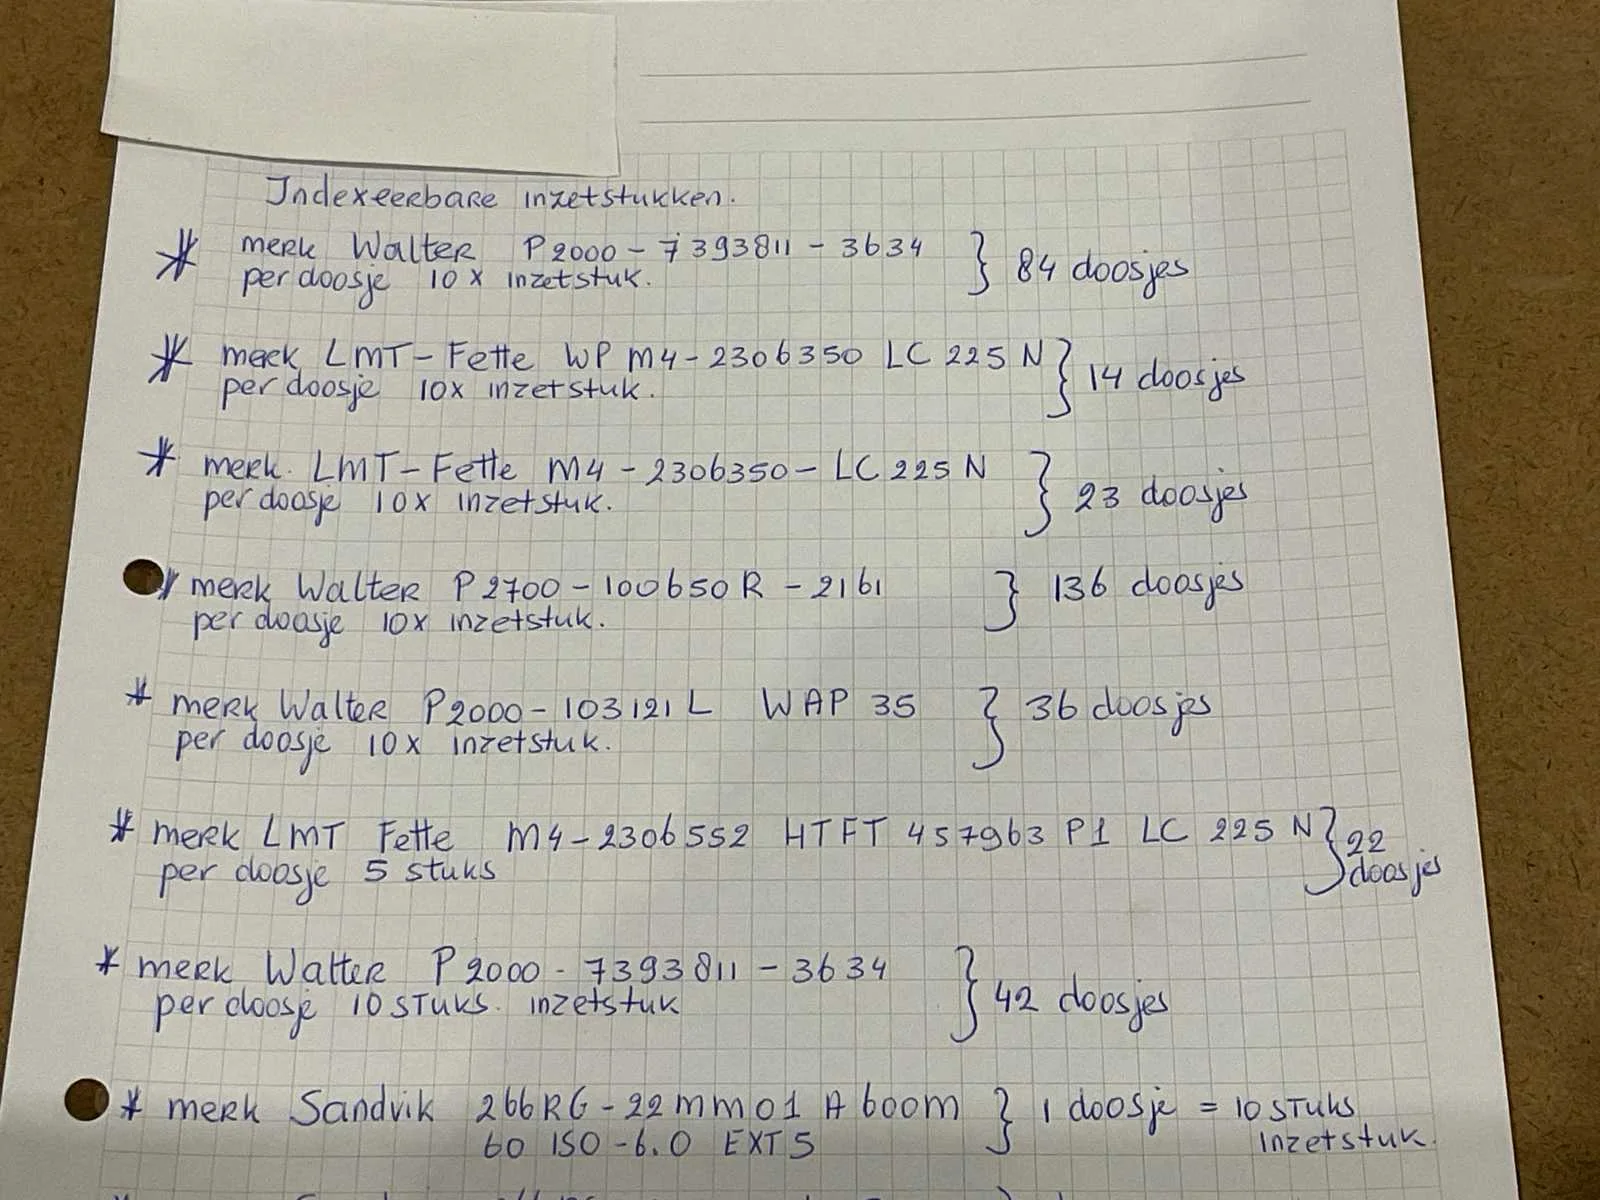 Indexeerbare inzetstukken.
* merk Walter P2000-7393811-3634 } 84 doosjes
per doosje 10 x inzetstuk.
* merk LMT-Fette WP M4-2306350 LC 225 N } 14 doosjes
per doosje 10x inzetstuk.
* merk. LMT-Fette M4-2306350-LC 225 N } 23 doosjes
per doosje 10x inzetstuk.
* merk Walter P2700-100650R-2161 } 136 doosjes
per doosje 10x inzetstuk.
* merk Walter P2000-103121 L WAP 35 } 36 doosjes
per doosje 10x inzetstuk.
* merk LMT Fette M4-2306552 HTFT 457963 P1 LC 225 N } 22
per doosje 5 stuks doosjes
* merk Walter P2000-7393811-3634 } 42 doosjes
per doosje 10 stuks. inzetstuk
* merk Sandvik 266RG-22mm01 A 600m } 1 doosje = 10 stuks
60 ISO-6.0 EXT 5 inzetstuk.